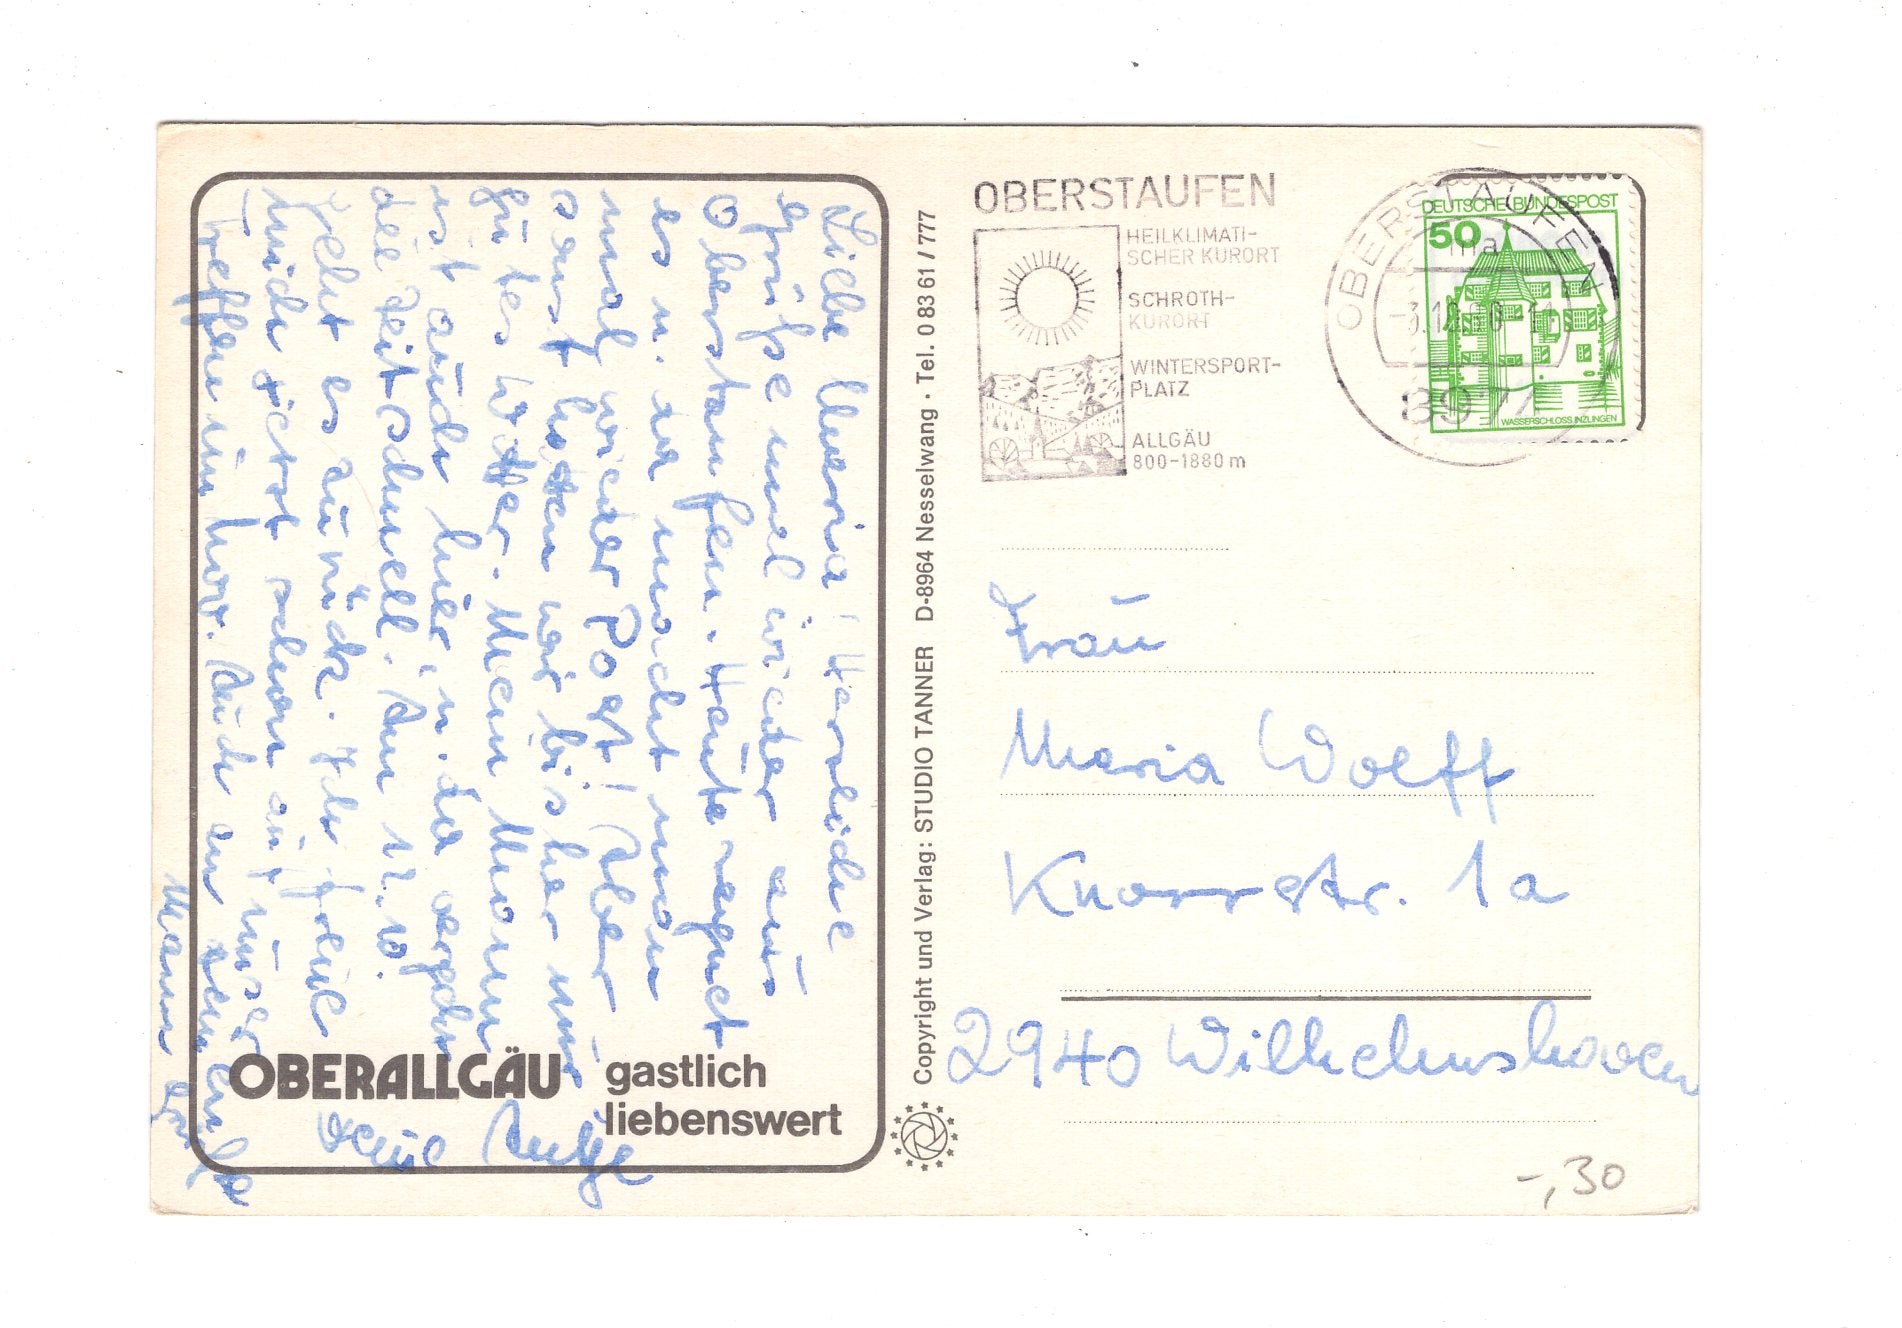 Liebe Maria! Herzliche
Grüße mal wieder aus
Oberstaufen. Heute regnet
es u. da macht man
mal wieder Post! Aber
sonst hatten wir bisher nur
gutes Wetter. Mein Mann
ist auch hier u. da vergeht
die Zeit schnell. Am 17.10.
geht es zurück. Ich freue
mich jetzt schon auf unser
Treffen im Nov. Auch an
Mann
Deine Antje
OBERALLGÄU gastlich
liebenswert
Copyright und Verlag: STUDIO TANNER D-8964 Nesselwang · Tel. 0 83 61 / 777
OBERSTAUFEN
HEILKLIMATI-
SCHER KURORT
SCHROTH-
KURORT
WINTERSPORT-
PLATZ
ALLGÄU
800-1880 m
OBERSTAUFEN
ma
8974
DEUTSCHE BUNDESPOST
50
WASSERSCHLOSS INZLINGEN
Frau
Maria Wolff
Knorrstr. 1a
2940 Wilhelmshaven
-,30